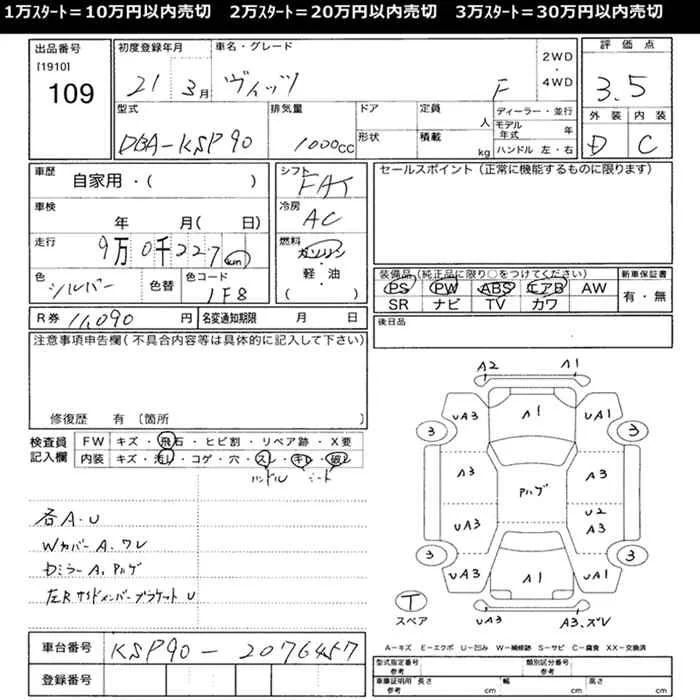 1万ｽﾀｰﾄ＝10万円以内売切 2万ｽﾀｰﾄ＝20万円以内売切 3万ｽﾀｰﾄ＝30万円以内売切
出品番号
[1910]
109
初度登録年月
21 3月
車名・グレード
ヴィッツ
F
2WD
・
4WD
評価点
3.5
外装 内装
D C
型式
DBA-KSP90
排気量
1000cc
ドア
定員
人
形状
積載
kg
ディーラー・並行
モデル年式 年
ハンドル 左・右
車歴
自家用・( )
車検
年 月( 日)
走行
9万0千227km
色
シルバー
色替
色コード
1F8
シフト
FAT
冷房
AC
燃料
ガソリン
・
軽・油
( )
セールスポイント（正常に機能するものに限ります）
装備品（純正品に限り○をつけてください）
PS PW ABS エアB AW
SR ナビ TV カワ
新車保証書
有・無
R券 11,090 円
名変通知期限 月 日
後日品
注意事項申告欄（不具合内容等は具体的に記入して下さい）
修復歴 有〔箇所
検査員
記入欄
FW キズ・飛石・ヒビ割・リペア跡・X要
内装 キズ・汚れ・コゲ・穴・スレ・キレ・破レ
ハンドル シート
各A.U
Wカバー A、ワレ
Dミラー A、アルゲ
左Rサイドメンバーブラケット U
車台番号 KSP90-2076457
登録番号
A2 A1
UA3 A1 UA1
3 3
A3 A3
アルゲ
U2
UA3 A3
3 3
UA3 A1 UA1
T
スペア
UA3 A3.ズV
A―キズ E―エクボ U―凹み W―補修跡 S―サビ C―腐食 XX―交換済
型式指定番号
参考
類別区分番号
参考
車庫証明用
参考
長さ cm 幅 cm 高さ cm